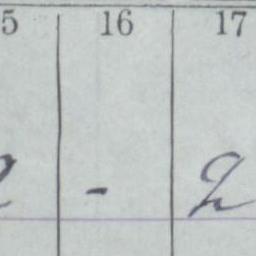 5 16 17
2 - 2